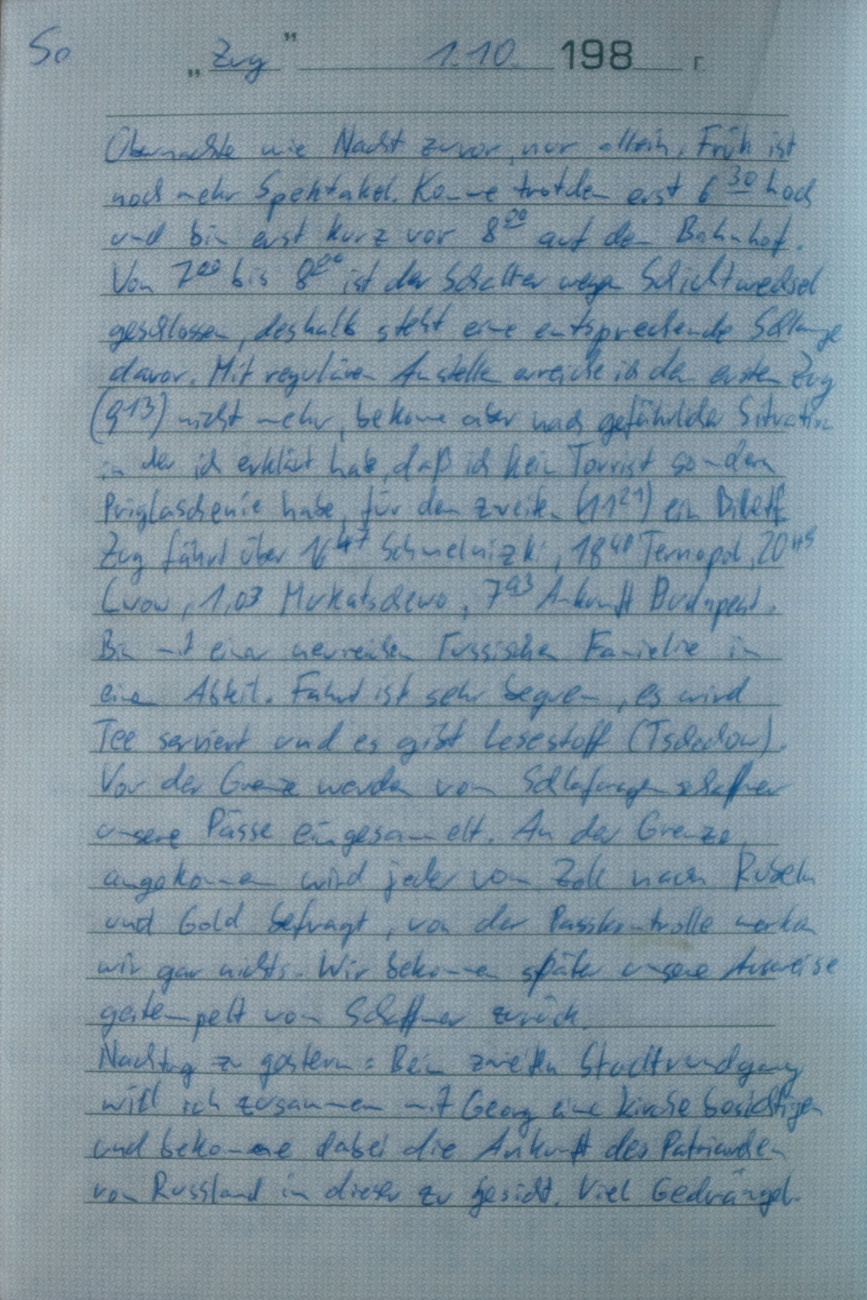 So
„Zug" 1.10. 198 г.
Übernachte wie Nacht zuvor, nur allein. Früh ist
noch mehr Spektakel. Komme trotdem erst 6 30 hoch
und bin erst kurz vor 8 00 auf dem Bahnhof.
Von 7 00 bis 8 00 ist der Schalter wegen Schichtwechsel
geschlossen, deshalb steht eine entsprechende Schlange
davor. Mit regulären Anstellen erreiche ich den ersten Zug
(9 13) nicht mehr, bekomme aber nach gefährlicher Situation
in der ich erklärt habe, daß ich kein Tourist sondern
Priglaschenie habe, für den zweiten (11 21) ein Billett
Zug fährt über 16 47 Schmelnizki, 18 40 Ternopol, 20 45
Lwow, 1,03 Mukatschewo, 7 43 Ankunft Budapest.
Bin mit einer russischen Familie in
einem Abteil. Fahrt ist sehr bequem, es wird
Tee serviert und es gibt Lesestoff (Tschechow).
Vor der Grenze werden vom Schlafwagenschaffner
unsere Pässe eingesammelt. An der Grenze
angekommen wird jeder vom Zoll nach Rubeln
und Gold befragt, von der Passkontrolle merken
wir gar nichts. Wir bekommen später unsere Ausweise
gestempelt vom Schaffner zurück.
Nachtrag zu gestern: Beim zweiten Stadtrundgang
will ich zusammen mit Georg eine Kirche besichtigen
und bekomme dabei die Ankunft des Patriarchen
von Russland in dieser zu Gesicht. Viel Gedrängel.